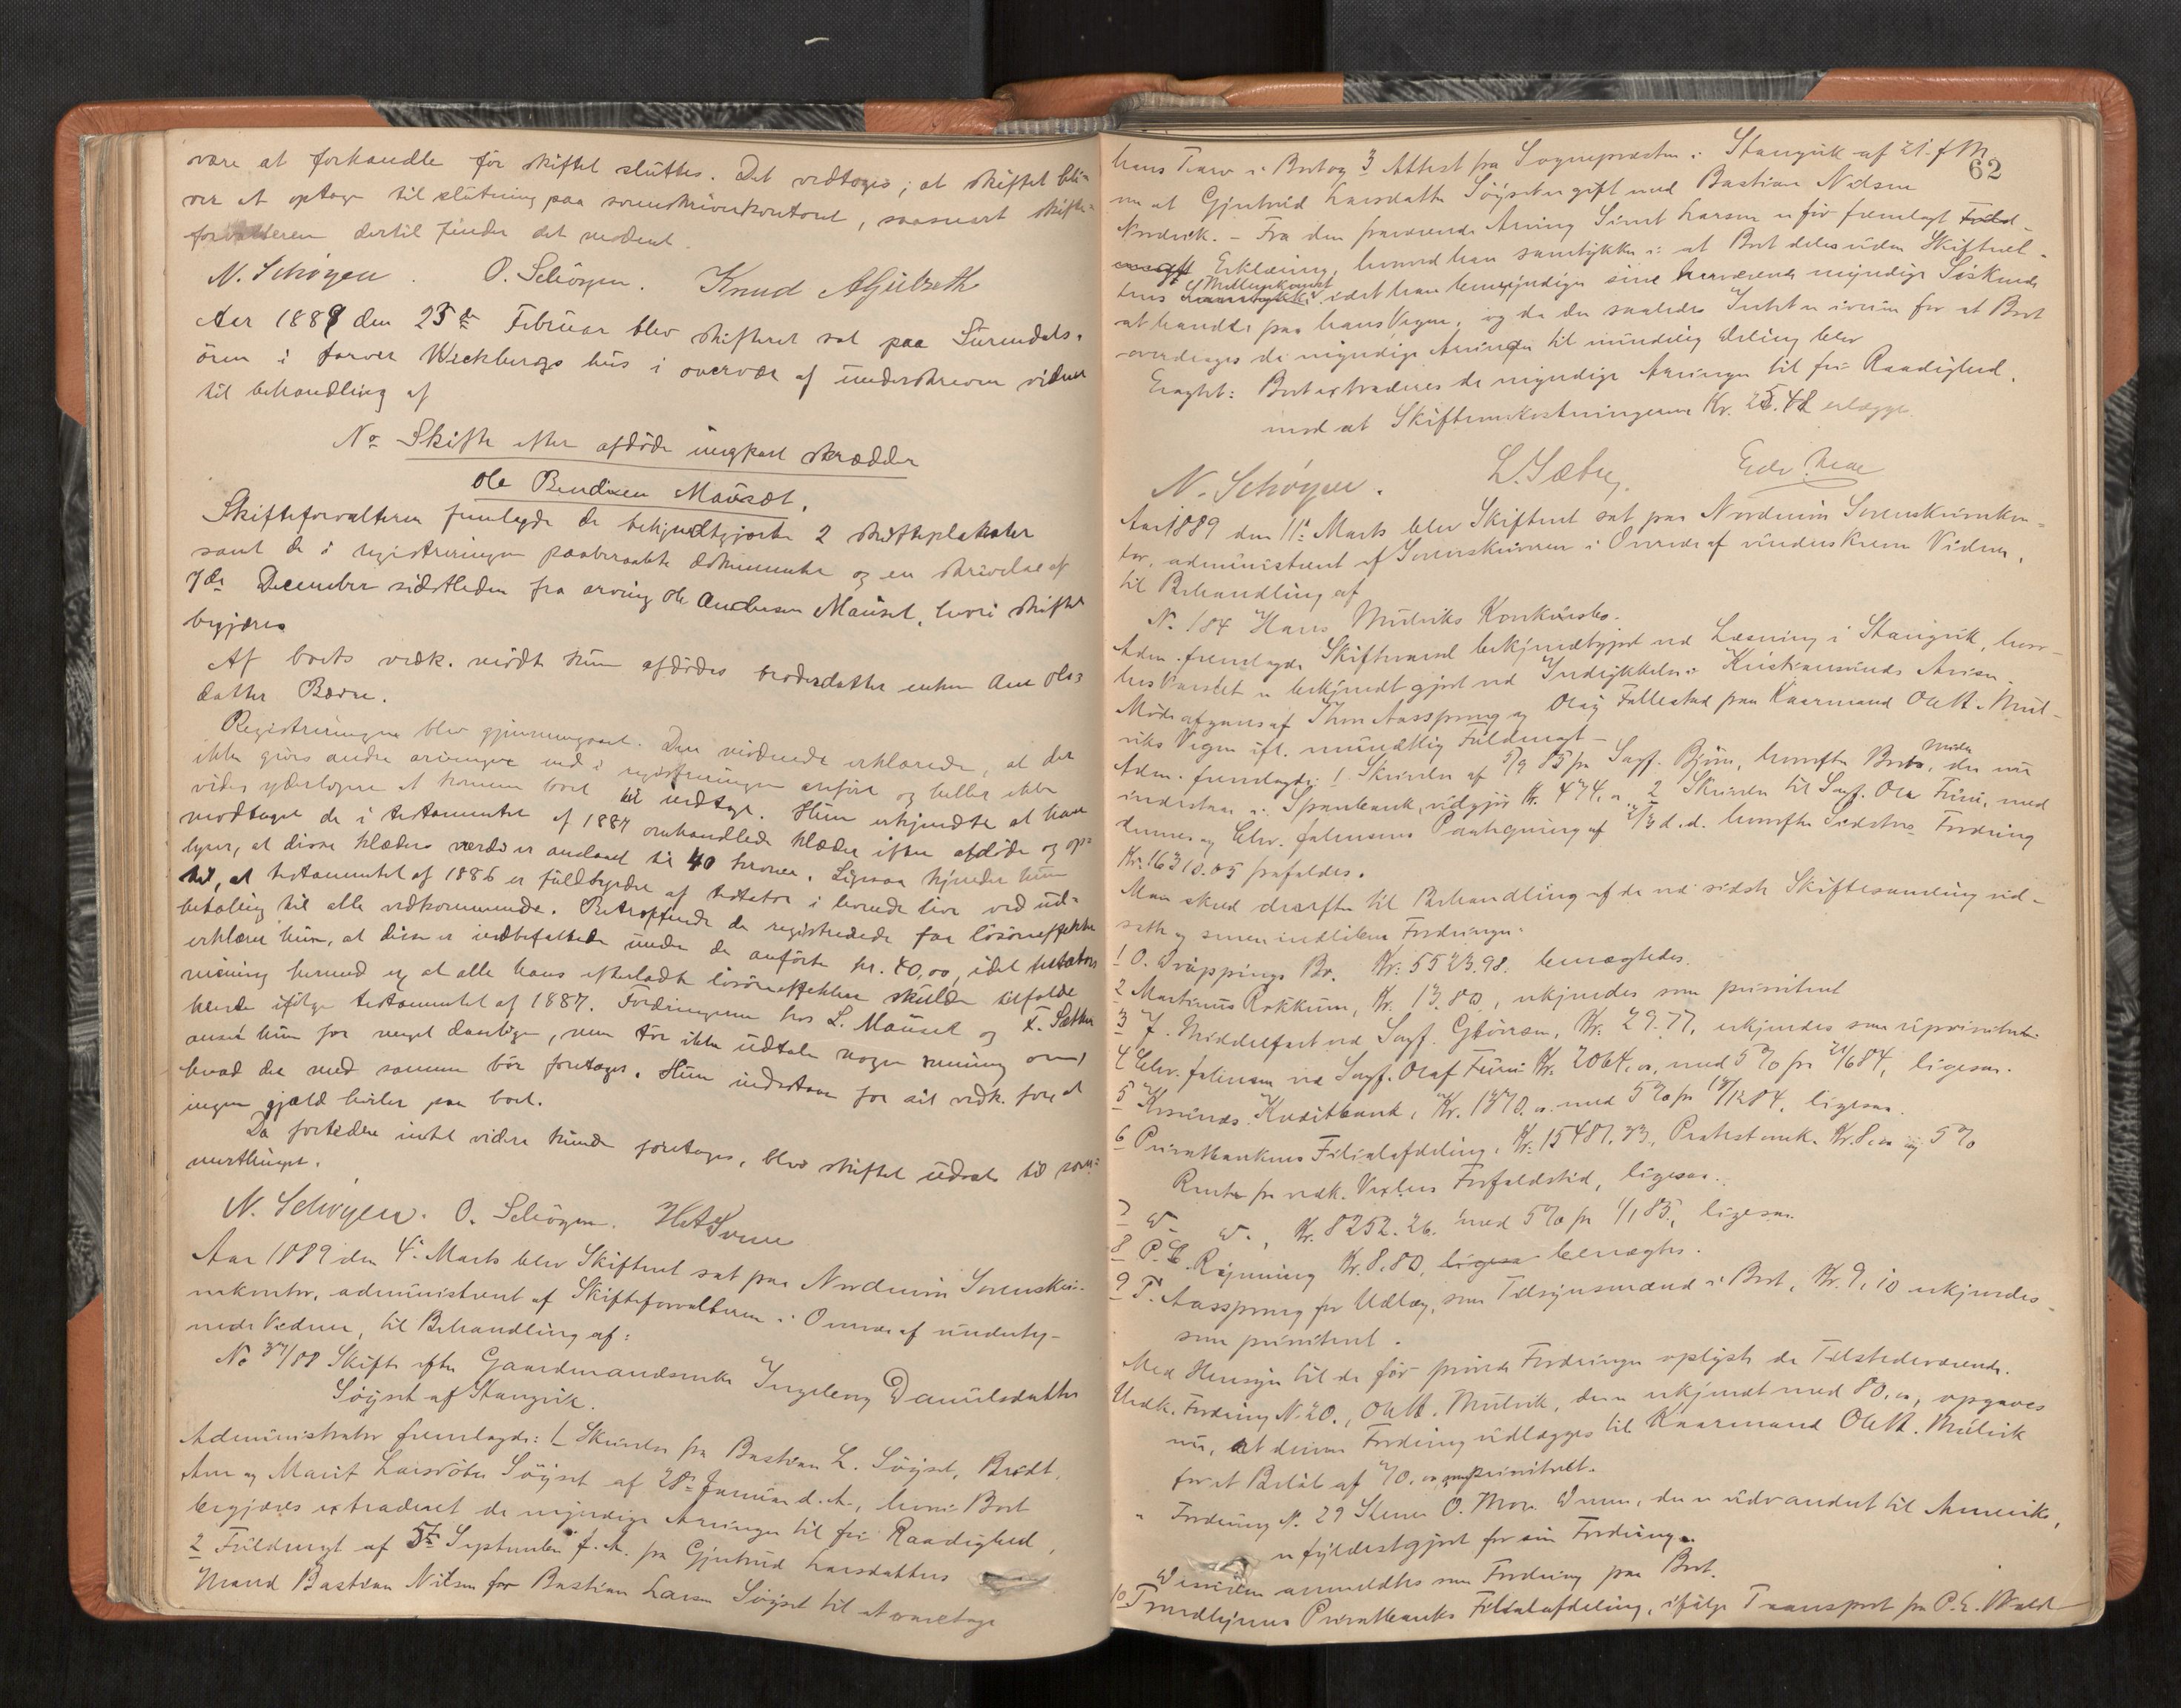 være at forhandle før skiftet sluttes. Det vedtoges, at skiftet bli=
ver at optage til slutning paa sorenskriverkontoret, saasnart skifte=
forvalteren dertil finder det modent.
N. Schöyen. O. Schöyen. Knud
Aar 1889 den 25de Februar blev skifteret sat paa Surendals=
ören i farver Weckbergs hus i overvær af underskrevne vidner
til behandling af
No Skifte efter afdöde ungkarl skrædder
Ole Bendixen Mauset.
Skifteforvalteren fremlagde de bekjendtgjorte 2 skifteplakater
samt de i registreringen paaberaabte dokumenter og en skrivelse af
7de December sidstleden fra arving Ole Andersen Mauset, hvori skifte
begjæres
Af boets vedk. mödte kun afdödes broderdatter enken Ane Ols=
datter Bævre.
Registreringen blev gjennemgaaet. Den mödende erklærede, at der
ikke gives andre arvinger end i registreringen anfört og heller ikke
vides yderligere at komme boet til indtægt. Hun erkjendte at have
modtaget de i testamentet af 1887 omhandlede klæder efter afdöde og op=
lyser, at disse klæders værdi er anslaaet til 40 kroner. Ligesaa kjender hun
til, at testamentet af 1886 er fuldbyrdet af testator i levende live ved ud=
betaling til alle vedkommende. Betræffende de registrerede faa lösöreeffekter
erklærer hun, at disse er indbefattede under de anförte kr. 40,00, idet testators
mening hermed var at alle hans efterladte lösöreeffekter skulde tilfalde
hende ifölge testamentet af 1887. Fordringerne hos L. Mauset og
anser hun for meget daarlige, men tör ikke udtale nogen mening om,
hvad der med samme bör foretages. Hun indestaar for sit vedk. for, at
ingen gjæld hviler paa boet.
Da fortiden intet videre kunde foretages, blev skiftet udsat til som=
mertinget.
N. Schöyen. O. Schöyen.
Aar 1889 den 4de Marts blev Skifteret sat paa Nordmöre Sorenskri-
verkontor, administreret af Skifteforvalteren i Overvær af underteg-
nede Vidner, til Behandling af:
No 37/88 Skifte efter Gaardmandsenke Ingeborg Danielsdatter
Söyset af Stangvik.
Administrator fremlagde: 1 Skrivelse fra Bastian L. Söyset, Berdt,
Ane og Marit Larsdöter Söyset af 28de Januar d. A., hvori Boet
begjæres extraderet de myndige Arvinger til fri Raadighed,
2 Fuldmagt af 5te September f. A. fra Gjertrud Larsdatters
Mand Bastian Nilsen for Bastian Larsen Söyset til at varetage
62
hans Tarv i Boet og 3 Attest fra Sognepræsten i Stangvik af 21. f. M.
om at Gjertrud Larsdatter Söyset er gift med Bastian Nilsen
Nordvik. – Fra den fraværende Arving Sivert Larsen er för fremlagt
Erklæring, hvorved han samtykker i at Boet deles uden Skifteret-
tens Mellemkomst idet han bemyndiger sine herværende myndige Söskende
at handle paa hans Vegne, og da der saaledes Intet er iveien for at Boet
overdrages de myndige Arvinger til mindelig Deling blev
Eragtet: Boet extraderes de myndige Arvinger til fri Raadighed,
mod at Skifteomkostningerne Kr. 25.48 erlægges.
N. Schöyen. L. Sæter
Aar 1889 den 11te Marts blev Skifteret sat paa Nordmöre Sorenskriverkon-
tor, administreret af Sorenskriveren i Overvær af underskrevne Vidner,
til Behandling af
No. 184 Hans Mulviks Konkursbo.
Adm. fremlagde Skiftevarsel bekjendtgjort ved Læsning i Stangvik, hvor-
hos Varslet er bekjendtgjort ved Indrykkelse i Kristiansunds Avisen.
Möde afgaves af Thore Aasprong og Olaf Fallestad paa Kaarmand Ole H. Mul-
viks Vegne ifl. mundtlig Fuldmagt –
Adm. fremlagde: 1 Skrivelse af 5/9 85 fra Sagf. Björn, hvorefter Boets Midler, der nu
indestaar i Sparebank, udgjör Kr. 474, 2 Skrivelse til Sagf. Olaf Furu, med
dennes og Chr. Johnsens Paategning af d. d. hvorefter Sidstes Fordring
Kr. 16310.05 frafaldes.
Man skred derefter til Behandling af de ved sidste Skiftesamling ud-
satte og senere indblevne Fordringer:
1 O. Dröppings Bo. Kr. 5523.98. benægtedes.
2 Martinus Røkkum, Kr. 13.80, erkjendes som prioriteret
3 J. Middelfart ved Sagf. Gjörvan, Kr. 29.77, erkjendes som uprioriteret
4 Chr. Johnsen ved Sagf. Olaf Furu Kr. 2064, med 5 % fra 21/6 84, ligesaa.
5 Krsunds Kreditbank, Kr. 1870. med 5 % fra 18/12 84, ligesaa.
6 Privatbankens Filialafdeling, Kr. 15487.33, Protestomk. Kr. 8, og 5 %
Rente fra vedk. Vexlers Forfaldstid, ligesaa.
7 D- D-, Kr. 8252.26. med 5 % fra 1/1 85, ligesaa.
8 P. C. Regning Kr. 8.80, ligesaa benægtes.
9 T. Aasprong for Udlæg, som Tilsynsmand i Boet, Kr. 9,10 erkjendes
som prioriteret.
Med Hensyn til de för prövede Fordringer oplyste de Tilstedeværende.
Vedk. Fordring No. 20, Ole H. Mulvik, der er erkjendt med 80, opgaves
nu, at denne Fordring udlægges til Kaarmand Ole H. Mulvik
for et Belöb af 70. som prioriteret.
" Fordring No. 29 Stener O. Moen, der er udvandret til Amerika,
er fyldestgjort for sin Fordring.
Desuden anmeldtes som Fordring paa Boet.
10 Trondhjems Privatbanks Filialafdeling, ifölge Transport fra P. E. Wald